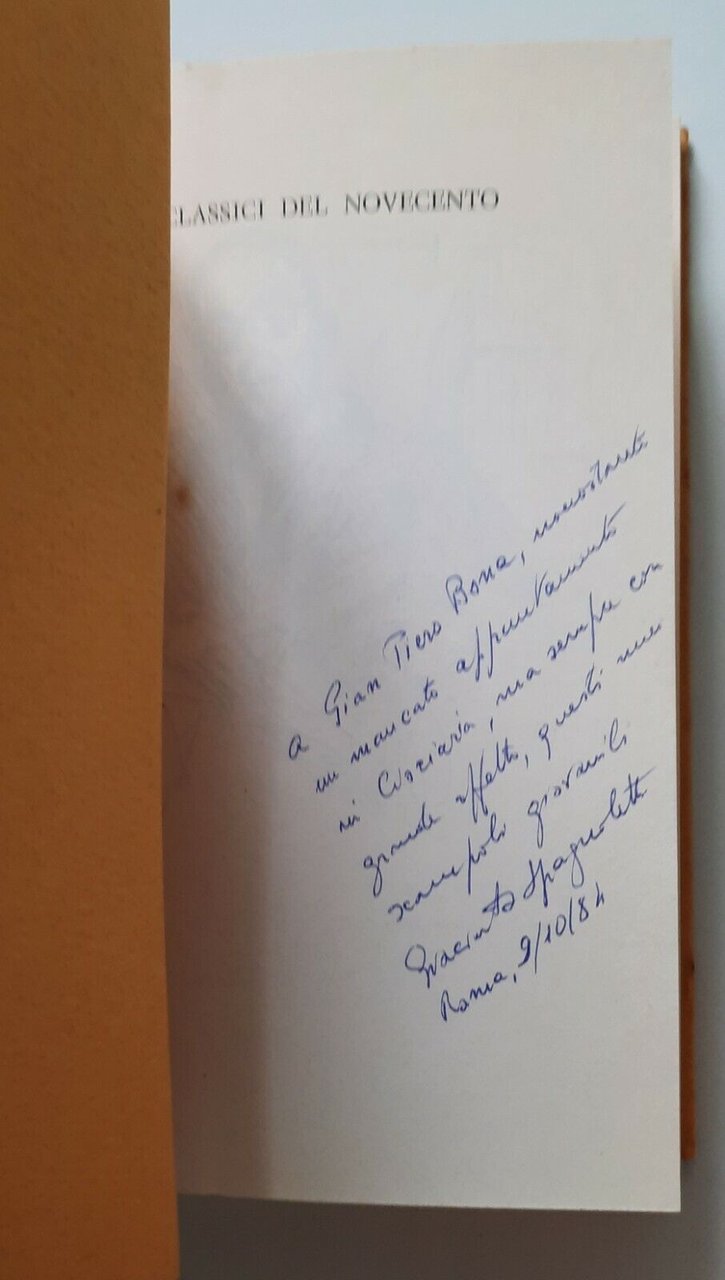 CLASSICI DEL NOVECENTO
a Gian Piero Bona, nonostante
un mancato appuntamento
in Ciociaria, ma sempre con
grande affetto, questi miei
scampoli giovanili
Giacinto Spagnoletti
Roma, 9/10/84